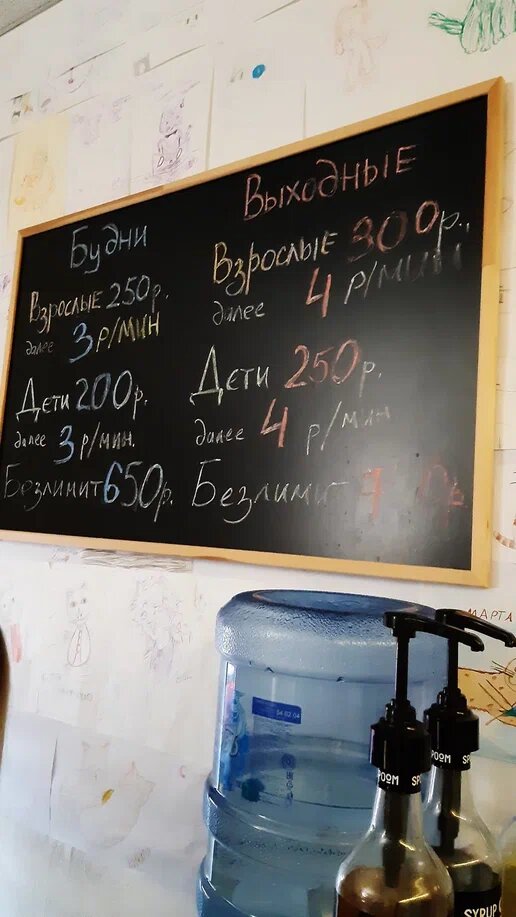 Будни
Взрослые 250р.
далее 3 р/мин
Дети 200р.
далее 3 р/мин.
Безлимит 650р.
Выходные
Взрослые 300р.,
далее 4 р/мин
Дети 250р.
далее 4 р/мин
Безлимит
МАРТА
54 02 04
SYRUP